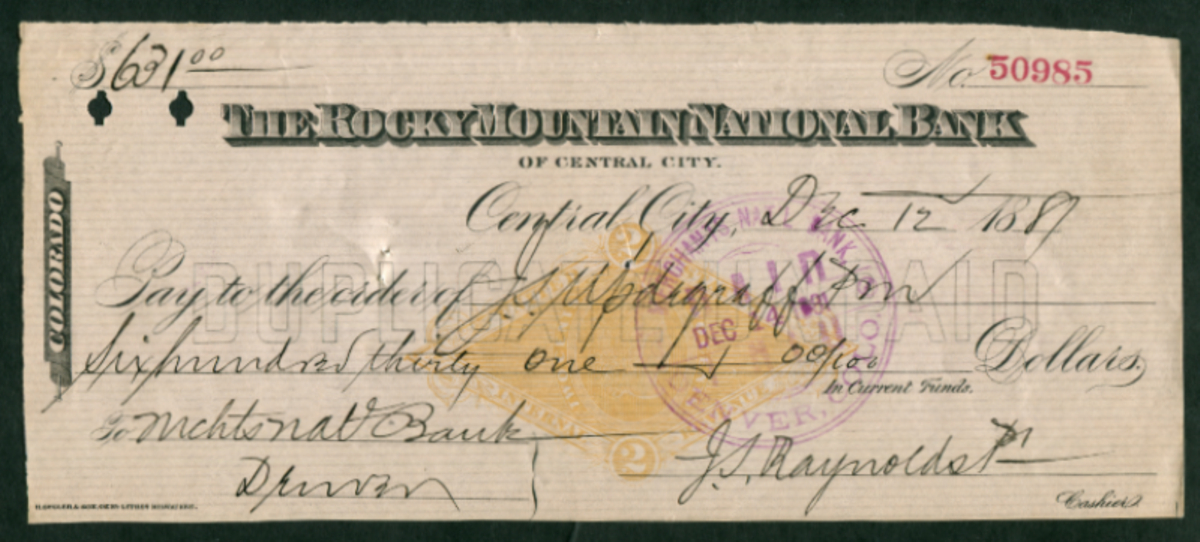 $631 00
No. 50985
THE ROCKY MOUNTAIN NATIONAL BANK
OF CENTRAL CITY.
COLORADO
Central City, Dec 12 1887
Pay to the order of J.S. Updegraff
DUPLICATE UNPAID
Six hundred thirty one 00/100 Dollars.
In Current Funds.
To Mchts Natl Bank
Denver
J.S. Raynolds
Cashier.
MERCHANTS NAT'L BANK
PAID
DEC 14
DENVER, COLO.
2
2